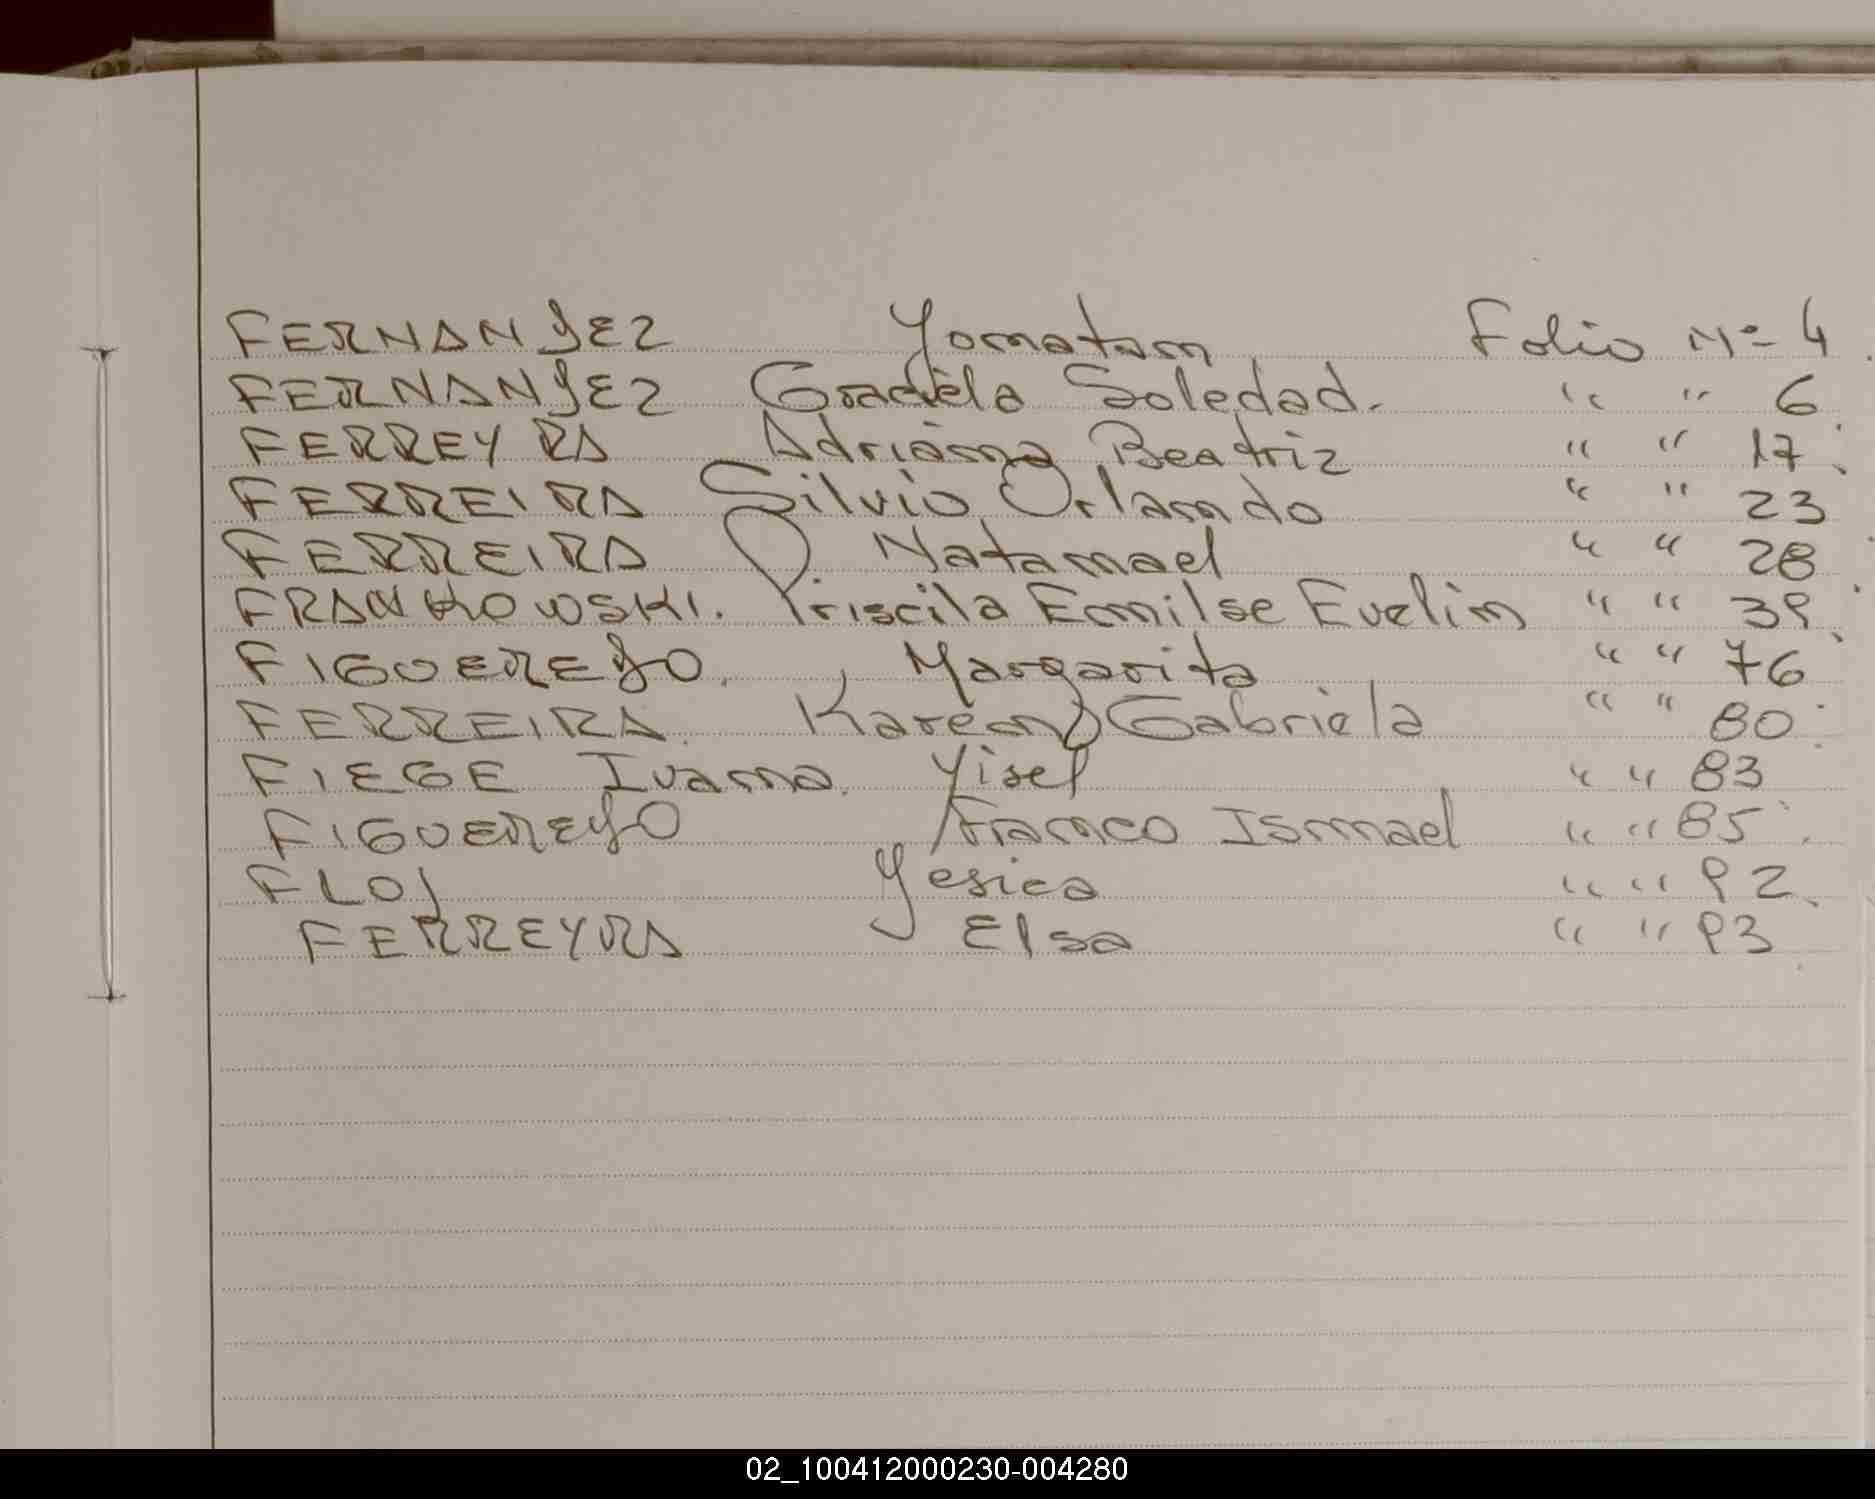 FERNANDEZ Yonatan Folio Nº 4
FERNANDEZ Graciela Soledad. " " 6
FERREYRA Adriana Beatriz " " 17
FERREIRA Silvio Orlando " " 23
FERREIRA Natanael " " 28
FRANKOWSKI. Priscila Emilse Evelin " " 39
FIGUEREDO. Margarita " " 76
FERREIRA. Karen Gabriela " " 80
FIEGE Ivana. Yisel " " 83
FIGUEREDO Franco Ismael " " 85
FLOJ Yesica " " 92
FERREYRA Elsa " " 93
02_100412000230-004280